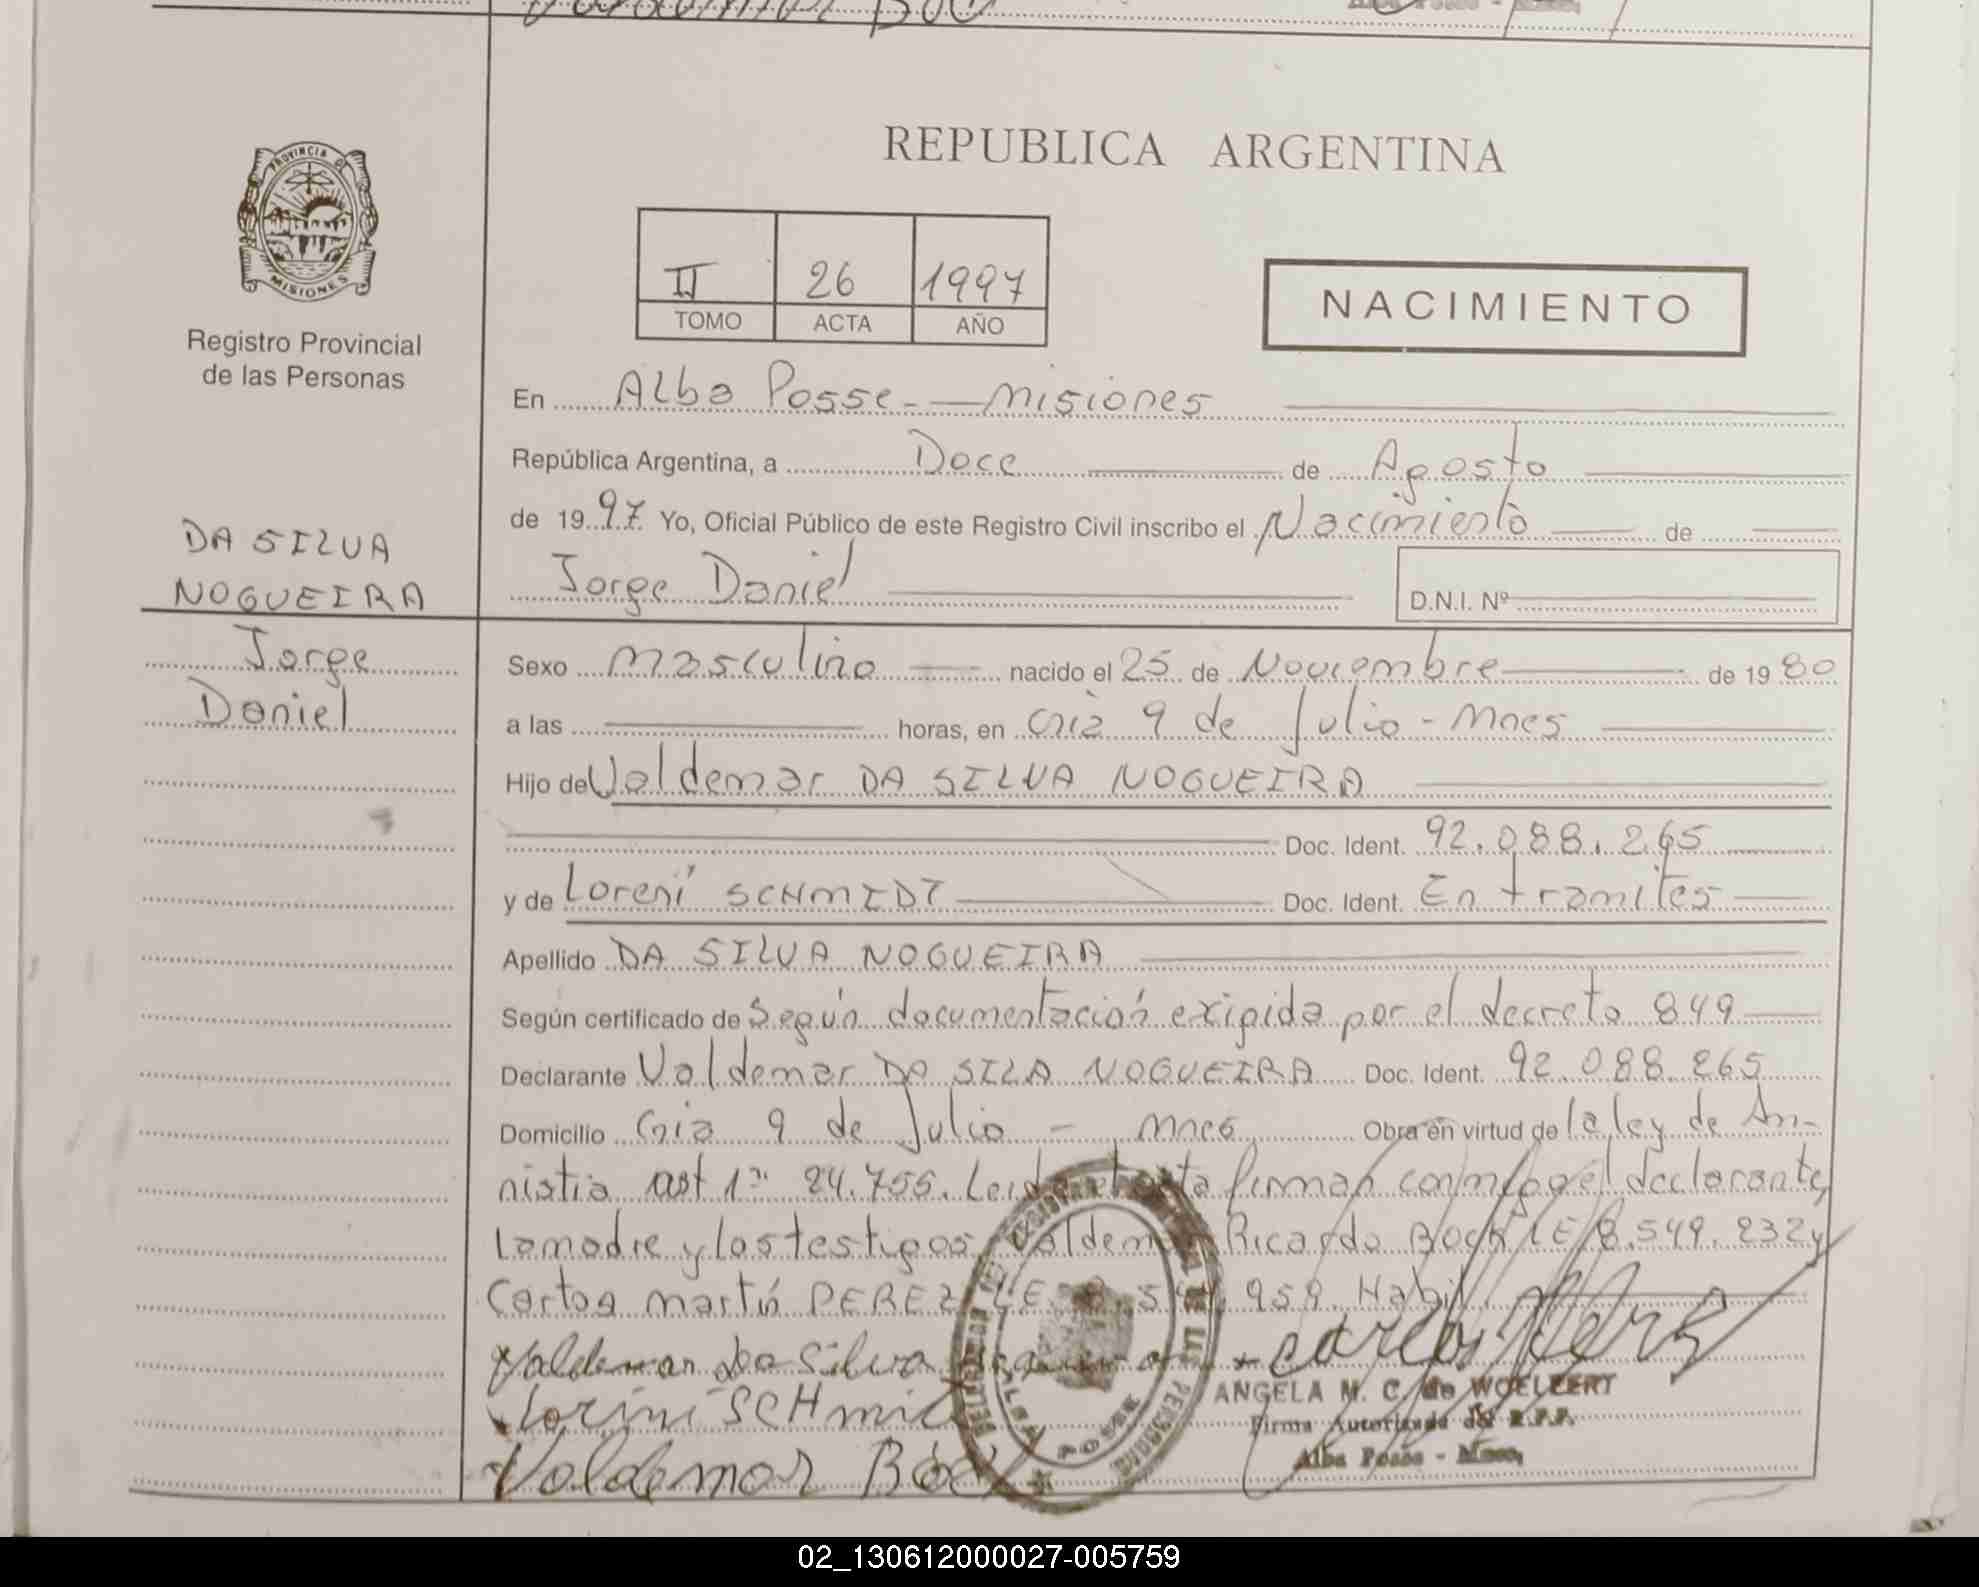 REPUBLICA ARGENTINA
PROVINCIA DE
MISIONES
Registro Provincial
de las Personas
II 26 1997
TOMO ACTA AÑO
NACIMIENTO
En Alba Posse - Misiones
República Argentina, a Doce de Agosto
de 1997 Yo, Oficial Público de este Registro Civil inscribo el Nacimiento de
Jorge Daniel D.N.I. Nº
DA SILVA
NOGUEIRA
Jorge
Daniel
Sexo Masculino nacido el 25 de Noviembre de 1980
a las horas, en Cnia 9 de Julio - Mnes
Hijo de Valdemar DA SILVA NOGUEIRA
Doc. Ident. 92.088.265
y de Loreni SCHMIDT Doc. Ident. En tramites
Apellido DA SILVA NOGUEIRA
Según certificado de Según documentación exigida por el decreto 849
Declarante Valdemar DA SILA NOGUEIRA Doc. Ident. 92.088.265
Domicilio Cnia 9 de Julio - Mnes Obra en virtud de la ley de Am-
nistia art 1º 24.755. Leida el acta firman conmigo el declarante,
la madre y los testigos Valdemar Ricardo Bock LE 8.549.232 y
Carlos Martín PEREZ LE 959 Habil.
Valdemar Da Silva
Carlos Perez
Lorini SCHmid
Valdemar
ANGELA M. C. de WOELLERT
Firma Autorizada del R.P.P.
Alba Posse - Mnes,
ALBA POSSE
02_130612000027-005759